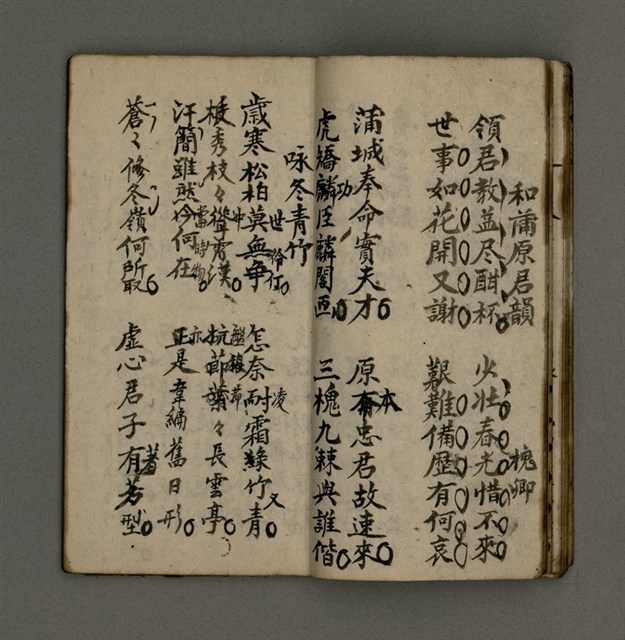 和蒲原君韻 槐卿
領君教益尽酣杯 少壯春光惜不來
世事如花開又謝 艱難備歷有何哀
蒲城奉命實夫才 原有本忠君故速來
虎嬌麟功臣麟閣画 三槐九棘與誰偕
咏冬青竹
歲寒松柏莫無爭 怎奈耐凌霜綠竹又青
梃秀枝々聳霄漢 抗節葉々長雲亭
汗簡雖然今何在 亦正是韋編舊日形
當時物
蒼々修冬嶺何所 虛心君子有著芳型